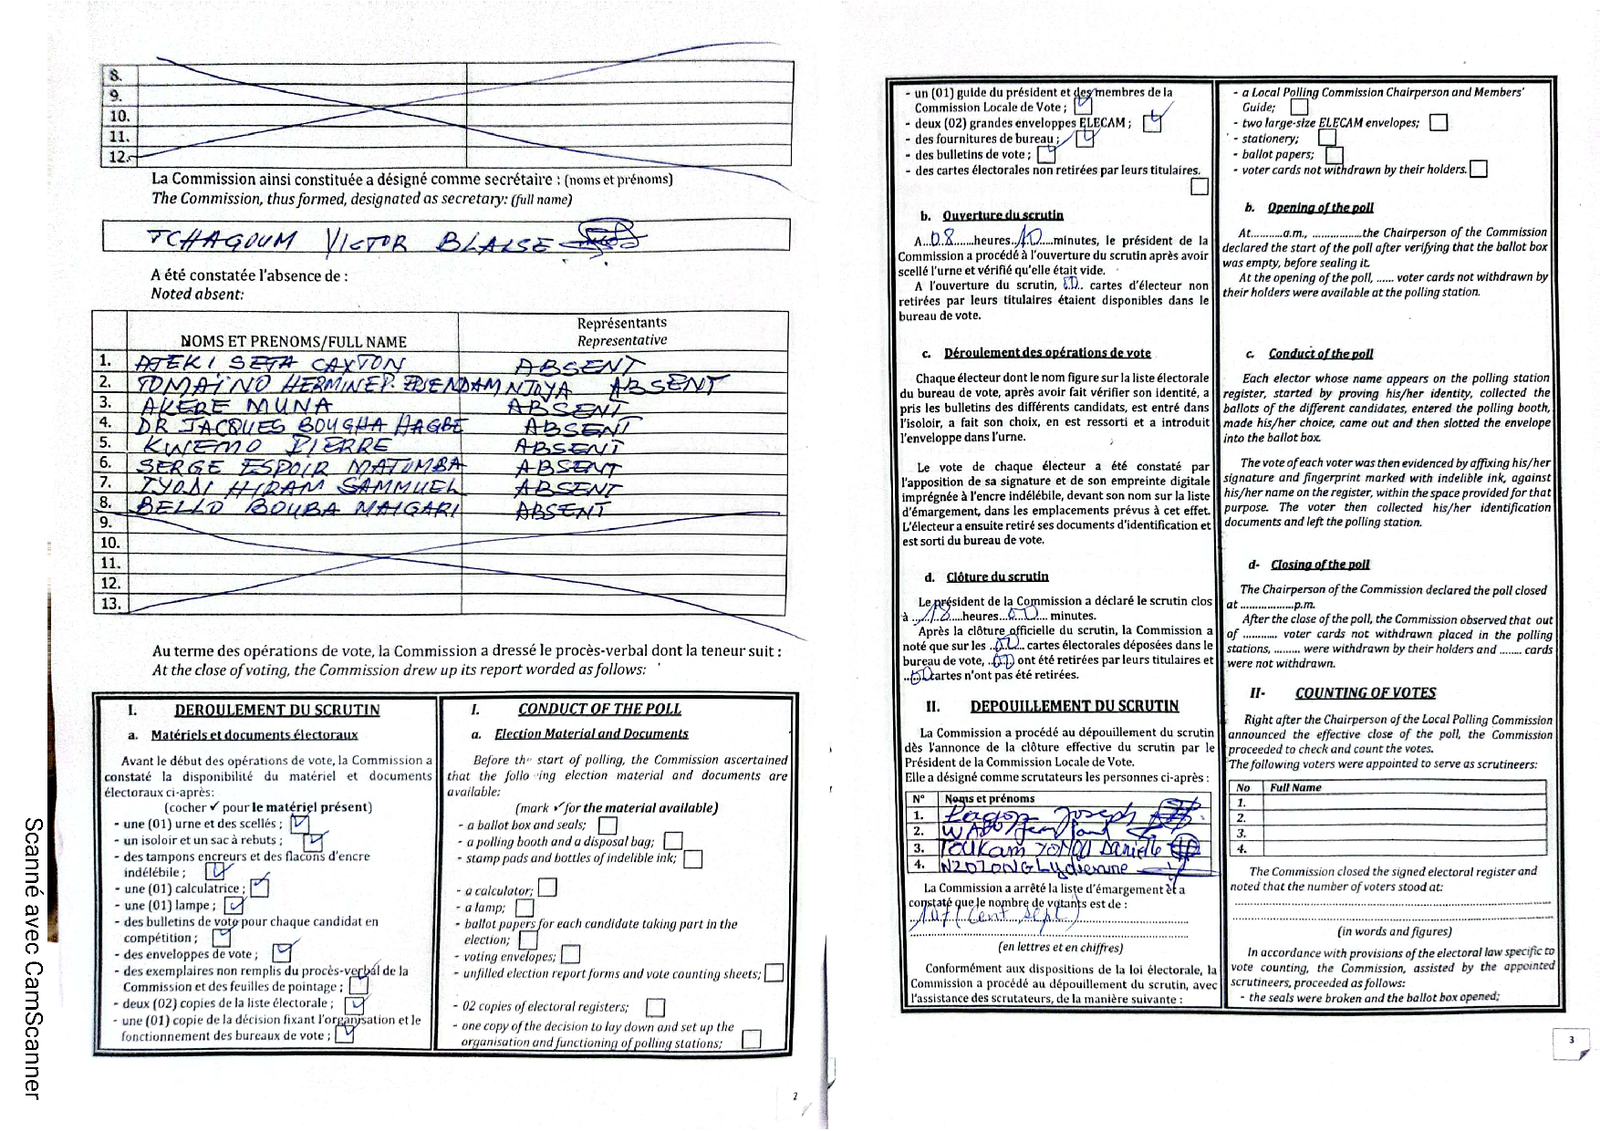 8.
9.
10.
11.
12.
La Commission ainsi constituée a désigné comme secrétaire : (noms et prénoms)
The Commission, thus formed, designated as secretary: (full name)
TCHAGOUM VICTOR BLAISE
A été constatée l'absence de :
Noted absent:
NOMS ET PRENOMS/FULL NAME
Représentants
Representative
1. ATEKI SETA CAXTON ABSENT
2. TOMAÏNO HERMINE P. NDAM NJOYA ABSENT
3. AKERE MUNA ABSENT
4. DR JACQUES BOUGHA HAGBE ABSENT
5. KWEMO PIERRE ABSENT
6. SERGE ESPOIR MATOMBA ABSENT
7. IYODI HIRAM SAMMUEL ABSENT
8. BELLO BOUBA MAIGARI ABSENT
9.
10.
11.
12.
13.
Au terme des opérations de vote, la Commission a dressé le procès-verbal dont la teneur suit :
At the close of voting, the Commission drew up its report worded as follows:
I. DEROULEMENT DU SCRUTIN
a. Matériels et documents électoraux
Avant le début des opérations de vote, la Commission a
constaté la disponibilité du matériel et documents
électoraux ci-après:
(cocher ✓ pour le matériel présent)
- une (01) urne et des scellés ;
- un isoloir et un sac à rebuts ;
- des tampons encreurs et des flacons d'encre
indélébile ;
- une (01) calculatrice ;
- une (01) lampe ;
- des bulletins de vote pour chaque candidat en
compétition ;
- des enveloppes de vote ;
- des exemplaires non remplis du procès-verbal de la
Commission et des feuilles de pointage ;
- deux (02) copies de la liste électorale ;
- une (01) copie de la décision fixant l'organisation et le
fonctionnement des bureaux de vote ;
I. CONDUCT OF THE POLL
a. Election Material and Documents
Before the start of polling, the Commission ascertained
that the following election material and documents are
available:
(mark ✓ for the material available)
- a ballot box and seals;
- a polling booth and a disposal bag;
- stamp pads and bottles of indelible ink;
- a calculator;
- a lamp;
- ballot papers for each candidate taking part in the
election;
- voting envelopes;
- unfilled election report forms and vote counting sheets;
- 02 copies of electoral registers;
- one copy of the decision to lay down and set up the
organisation and functioning of polling stations;
2
Scanné avec CamScanner
- un (01) guide du président et des membres de la
Commission Locale de Vote ;
- deux (02) grandes enveloppes ELECAM ;
- des fournitures de bureau ;
- des bulletins de vote ;
- des cartes électorales non retirées par leurs titulaires.
b. Ouverture du scrutin
A...08......heures..10....minutes, le président de la
Commission a procédé à l'ouverture du scrutin après avoir
scellé l'urne et vérifié qu'elle était vide.
A l'ouverture du scrutin, 00.. cartes d'électeur non
retirées par leurs titulaires étaient disponibles dans le
bureau de vote.
c. Déroulement des opérations de vote
Chaque électeur dont le nom figure sur la liste électorale
du bureau de vote, après avoir fait vérifier son identité, a
pris les bulletins des différents candidats, est entré dans
l'isoloir, a fait son choix, en est ressorti et a introduit
l'enveloppe dans l'urne.
Le vote de chaque électeur a été constaté par
l'apposition de sa signature et de son empreinte digitale
imprégnée à l'encre indélébile, devant son nom sur la liste
d'émargement, dans les emplacements prévus à cet effet.
L'électeur a ensuite retiré ses documents d'identification et
est sorti du bureau de vote.
d. Clôture du scrutin
Le président de la Commission a déclaré le scrutin clos
à ..18....heures...00... minutes.
Après la clôture officielle du scrutin, la Commission a
noté que sur les ..00.. cartes électorales déposées dans le
bureau de vote, ..00 ont été retirées par leurs titulaires et
..00 cartes n'ont pas été retirées.
II. DEPOUILLEMENT DU SCRUTIN
La Commission a procédé au dépouillement du scrutin
dès l'annonce de la clôture effective du scrutin par le
Président de la Commission Locale de Vote.
Elle a désigné comme scrutateurs les personnes ci-après :
N° Noms et prénoms
1. Joseph
2. Jean Paul
3. TOUKAM Danielle
4.
La Commission a arrêté la liste d'émargement et a
constaté que le nombre de votants est de :
107 (Cent sept)
(en lettres et en chiffres)
Conformément aux dispositions de la loi électorale, la
Commission a procédé au dépouillement du scrutin, avec
l'assistance des scrutateurs, de la manière suivante :
- a Local Polling Commission Chairperson and Members'
Guide;
- two large-size ELECAM envelopes;
- stationery;
- ballot papers;
- voter cards not withdrawn by their holders.
b. Opening of the poll
At..........a.m., ...............the Chairperson of the Commission
declared the start of the poll after verifying that the ballot box
was empty, before sealing it.
At the opening of the poll, ...... voter cards not withdrawn by
their holders were available at the polling station.
c. Conduct of the poll
Each elector whose name appears on the polling station
register, started by proving his/her identity, collected the
ballots of the different candidates, entered the polling booth,
made his/her choice, came out and then slotted the envelope
into the ballot box.
The vote of each voter was then evidenced by affixing his/her
signature and fingerprint marked with indelible ink, against
his/her name on the register, within the space provided for that
purpose. The voter then collected his/her identification
documents and left the polling station.
d- Closing of the poll
The Chairperson of the Commission declared the poll closed
at .................p.m.
After the close of the poll, the Commission observed that out
of ........... voter cards not withdrawn placed in the polling
stations, ......... were withdrawn by their holders and ........ cards
were not withdrawn.
II- COUNTING OF VOTES
Right after the Chairperson of the Local Polling Commission
announced the effective close of the poll, the Commission
proceeded to check and count the votes.
The following voters were appointed to serve as scrutineers:
No Full Name
1.
2.
3.
4.
The Commission closed the signed electoral register and
noted that the number of voters stood at:
(in words and figures)
In accordance with provisions of the electoral law specific to
vote counting, the Commission, assisted by the appointed
scrutineers, proceeded as follows:
- the seals were broken and the ballot box opened;
3